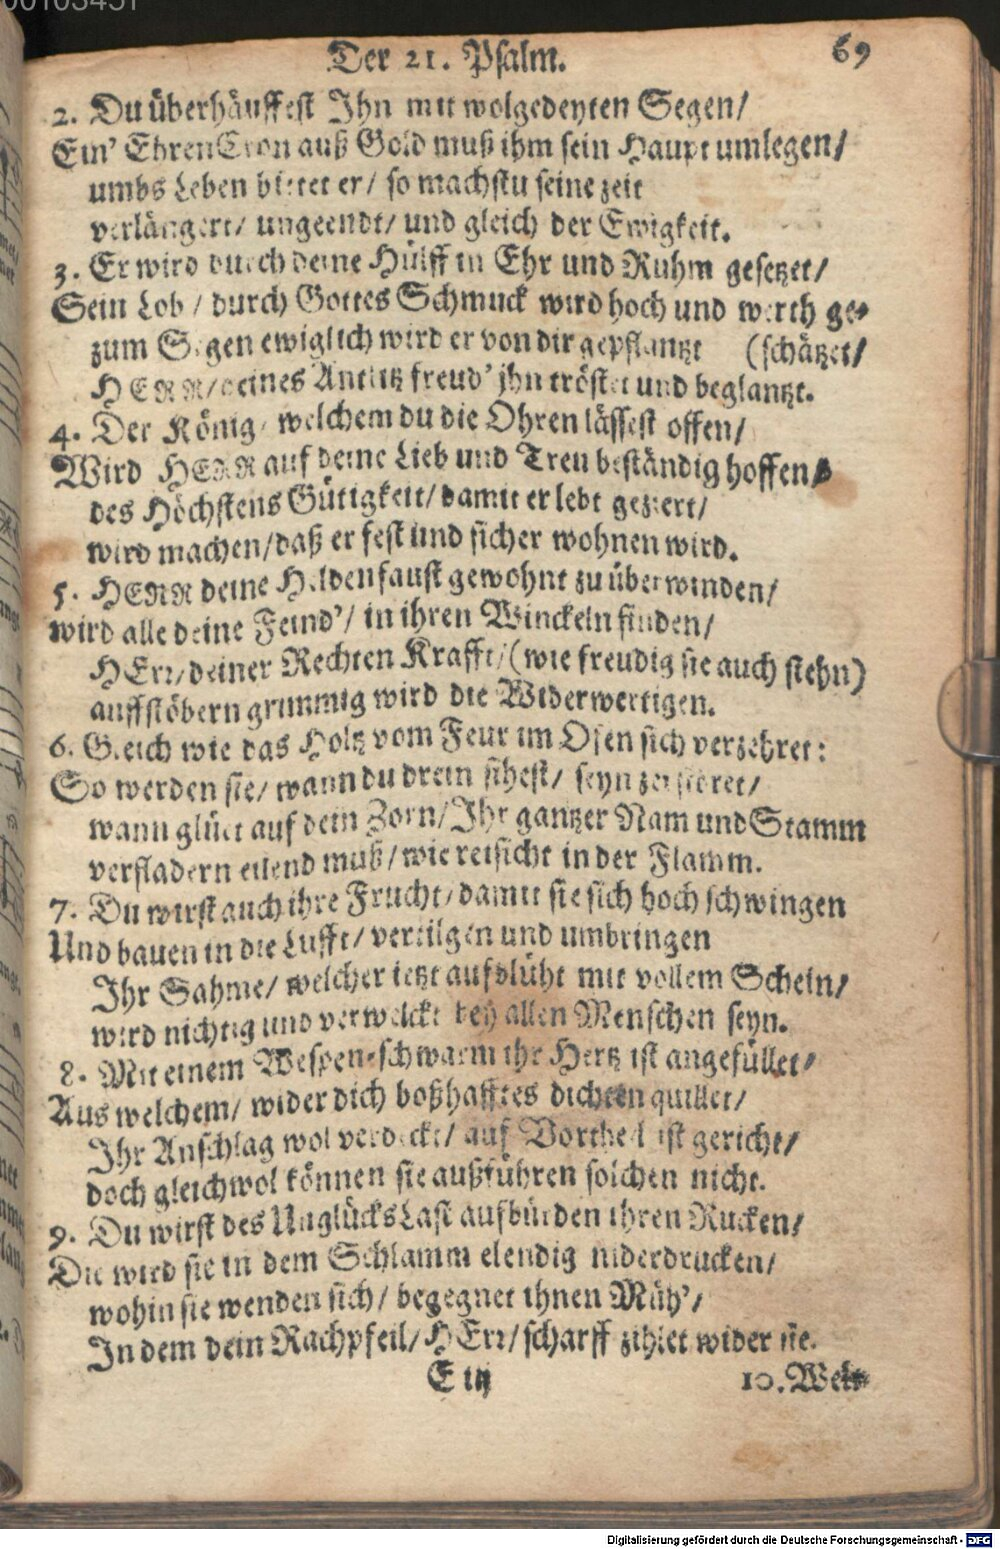 00103451
Der 21. Psalm. 69
2. Du überhäuffest Ihn mit wolgedeyten Segen/
Ein' EhrenCron auß Gold muß ihm sein Haupt umlegen/
umbs Leben bittet er/ so machstu seine zeit
verlängert/ ungeendt/ und gleich der Ewigkeit.
3. Er wird durch deine Hülff in Ehr und Ruhm gesetzet/
Sein Lob/ durch Gottes Schmuck wird hoch und werth ge-
zum Segen ewiglich wird er von dir gepflantzt (schätzet/
HERR/ deines Antlitz freud' jhn tröstet und beglantzt.
4. Der König/ welchem du die Ohren lässest offen/
Wird HERR auf deine Lieb und Treu beständig hoffen/
des Höchstens Gütigkeit/ damit er lebt geziert/
wird machen/ daß er fest und sicher wohnen wird.
5. HERR deine Heldenfaust gewohnt zu überwinden/
wird alle deine Feind'/ in ihren Winckeln finden/
HErr/ deiner Rechten Krafft/ (wie freudig sie auch stehn)
auffstöbern grimmig wird die Widerwertigen.
6. Gleich wie das Holtz vom Feur im Ofen sich verzehret:
So werden sie/ wann du drein sihest/ seyn zerstöret/
wann glüet auf dein Zorn/ Ihr gantzer Nam und Stamm
verfladern eilend muß/ wie reisicht in der Flamm.
7. Du wirst auch ihre Frucht/ damit sie sich hoch schwingen
Und bauen in die Lufft/ vertilgen und umbringen
Ihr Sahme/ welcher ietzt aufblüht mit vollem Schein/
wird nichtig und verwelckt bey allen Menschen seyn.
8. Mit einem Wespen-schwarm ihr Hertz ist angefüllet/
Aus welchem/ wider dich boßhafftes dichten quillet/
Ihr Anschlag wol verdeckt/ auf Vortheil ist gericht/
doch gleichwol können sie außführen solchen nicht.
9. Du wirst des Unglücks Last aufbürden ihren Rucken/
Die wird sie in dem Schlamm elendig niderdrucken/
wohin sie wenden sich/ begegnet ihnen Müh'/
In dem dein Rachpfeil/ HErr/ scharff zihlet wider sie.
E iij 10. Weil
Digitalisierung gefördert durch die Deutsche Forschungsgemeinschaft - DFG